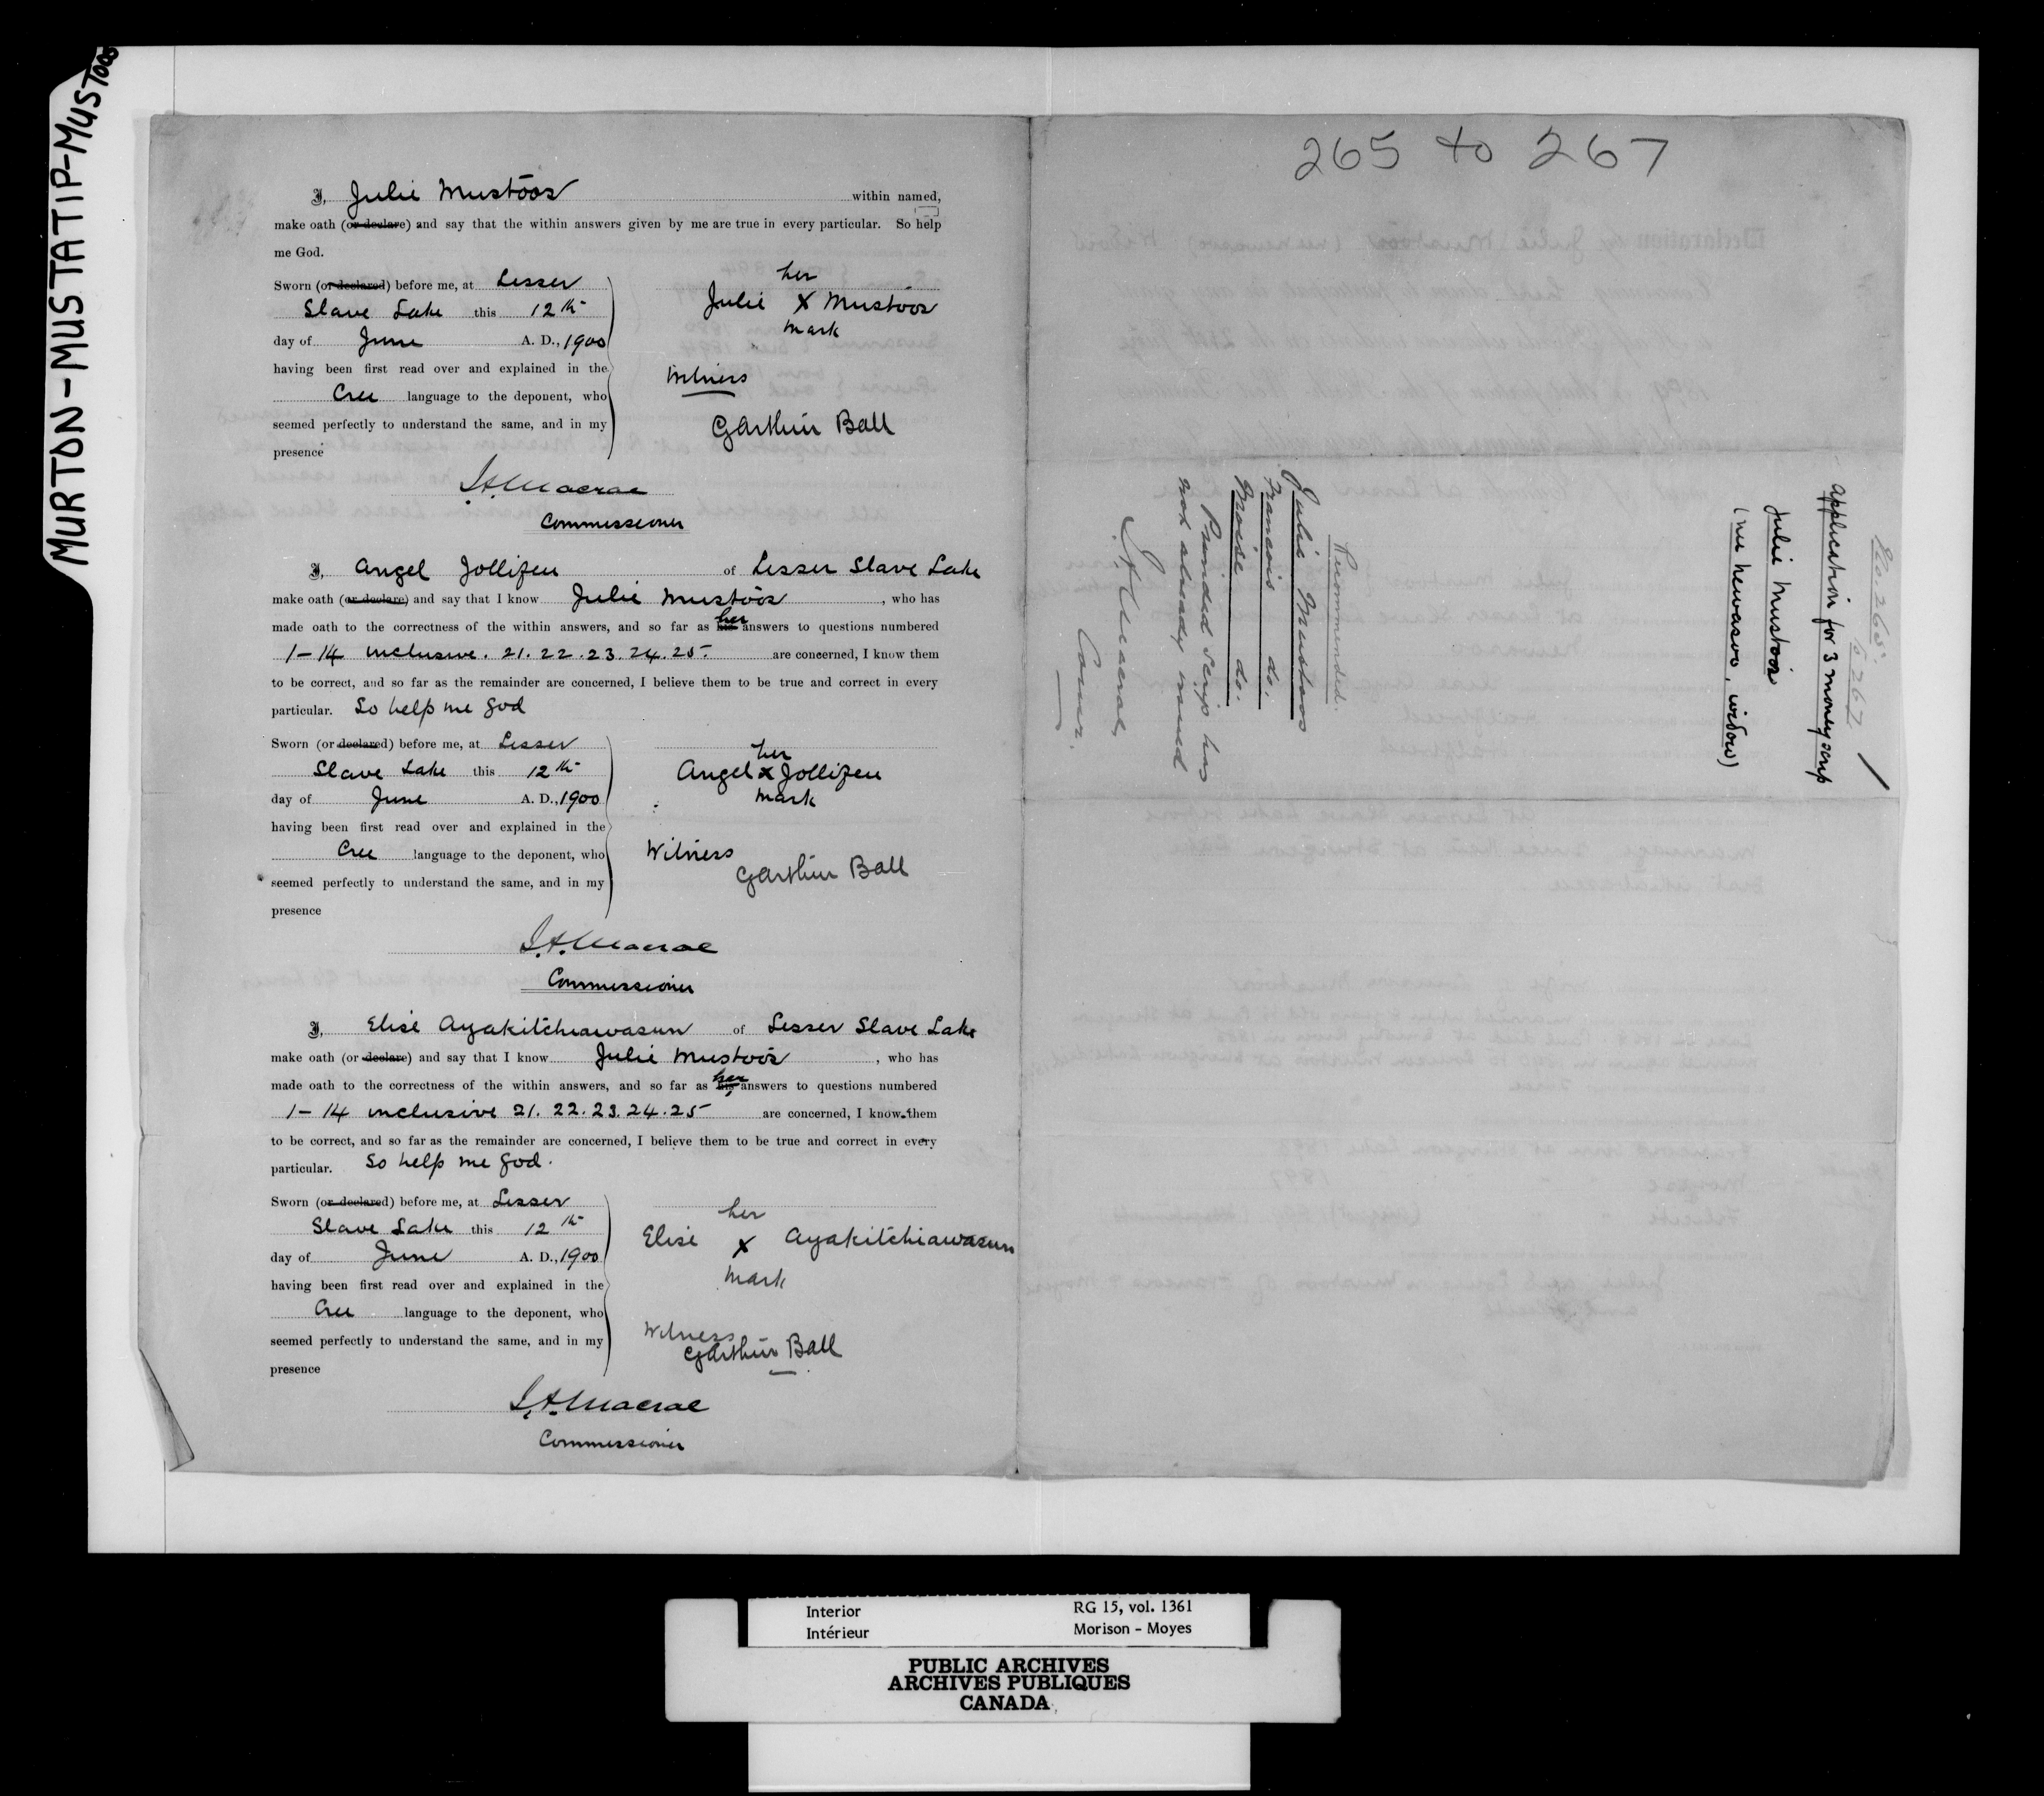 MURTON-MUSTATIP-MUSTOOS
I, Julie Mustoos within named,
make oath (or declare) and say that the within answers given by me are true in every particular. So help
me God.
Sworn (or declared) before me, at Lesser
Slave Lake this 12th
day of June A. D., 1900
having been first read over and explained in the
Cree language to the deponent, who
seemed perfectly to understand the same, and in my
presence
her
Julie X Mustoos
mark
Witness
GArthur Ball
J.A. Macrae
Commissioner
I, Angel Jollifeu of Lesser Slave Lake
make oath (or declare) and say that I know Julie Mustoos, who has
made oath to the correctness of the within answers, and so far as his her answers to questions numbered
1-14 inclusive. 21. 22. 23. 24. 25. are concerned, I know them
to be correct, and so far as the remainder are concerned, I believe them to be true and correct in every
particular. So help me God
Sworn (or declared) before me, at Lesser
Slave Lake this 12th
day of June A. D., 1900
having been first read over and explained in the
Cree language to the deponent, who
seemed perfectly to understand the same, and in my
presence
her
Angel X Jollifeu
mark
Witness
GArthur Ball
J.A. Macrae
Commissioner
I, Elise Ayakitchiawasun of Lesser Slave Lake
make oath (or declare) and say that I know Julie Mustoos, who has
made oath to the correctness of the within answers, and so far as his her answers to questions numbered
1-14 inclusive 21. 22. 23. 24. 25 are concerned, I know them
to be correct, and so far as the remainder are concerned, I believe them to be true and correct in every
particular. So help me God.
Sworn (or declared) before me, at Lesser
Slave Lake this 12th
day of June A. D., 1900
having been first read over and explained in the
Cree language to the deponent, who
seemed perfectly to understand the same, and in my
presence
her
Elise X Ayakitchiawasun
mark
Witness
GArthur Ball
J.A. Macrae
Commissioner
265 to 267
No. 265.
to 267
application for 3 money scrip
Julie Mustoos
(nee newasoo, widow)
Recommended.
Julie Mustoos
Francois do.
Moise do.
Printed scrip has
not already issued
J.A. Macrae,
Comr.
Interior
Intérieur
RG 15, vol. 1361
Morison - Moyes
PUBLIC ARCHIVES
ARCHIVES PUBLIQUES
CANADA